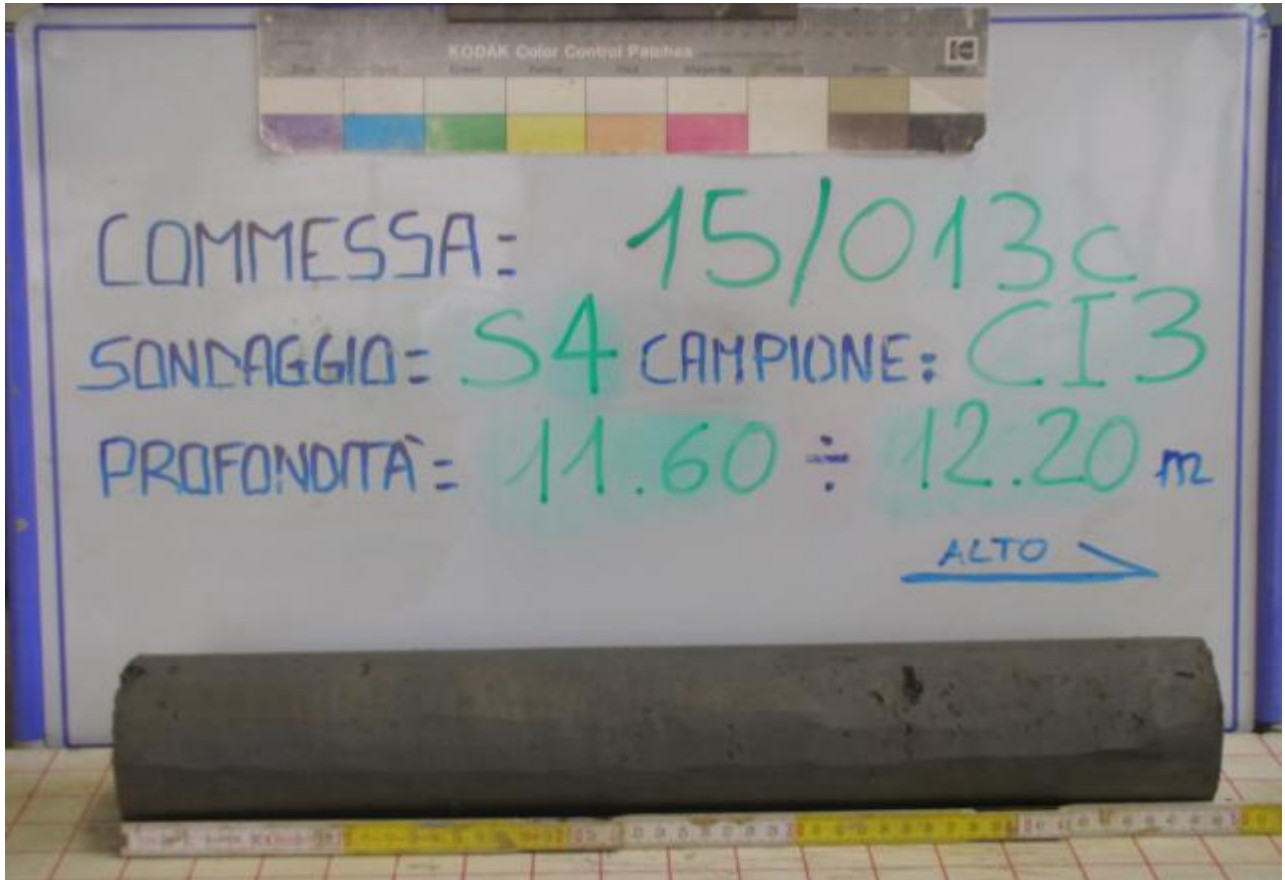 KODAK Color Control Patches
COMMESSA: 15/013c
SONDAGGIO: S4 CAMPIONE: CI3
PROFONDITÀ: 11.60 ÷ 12.20 m
ALTO